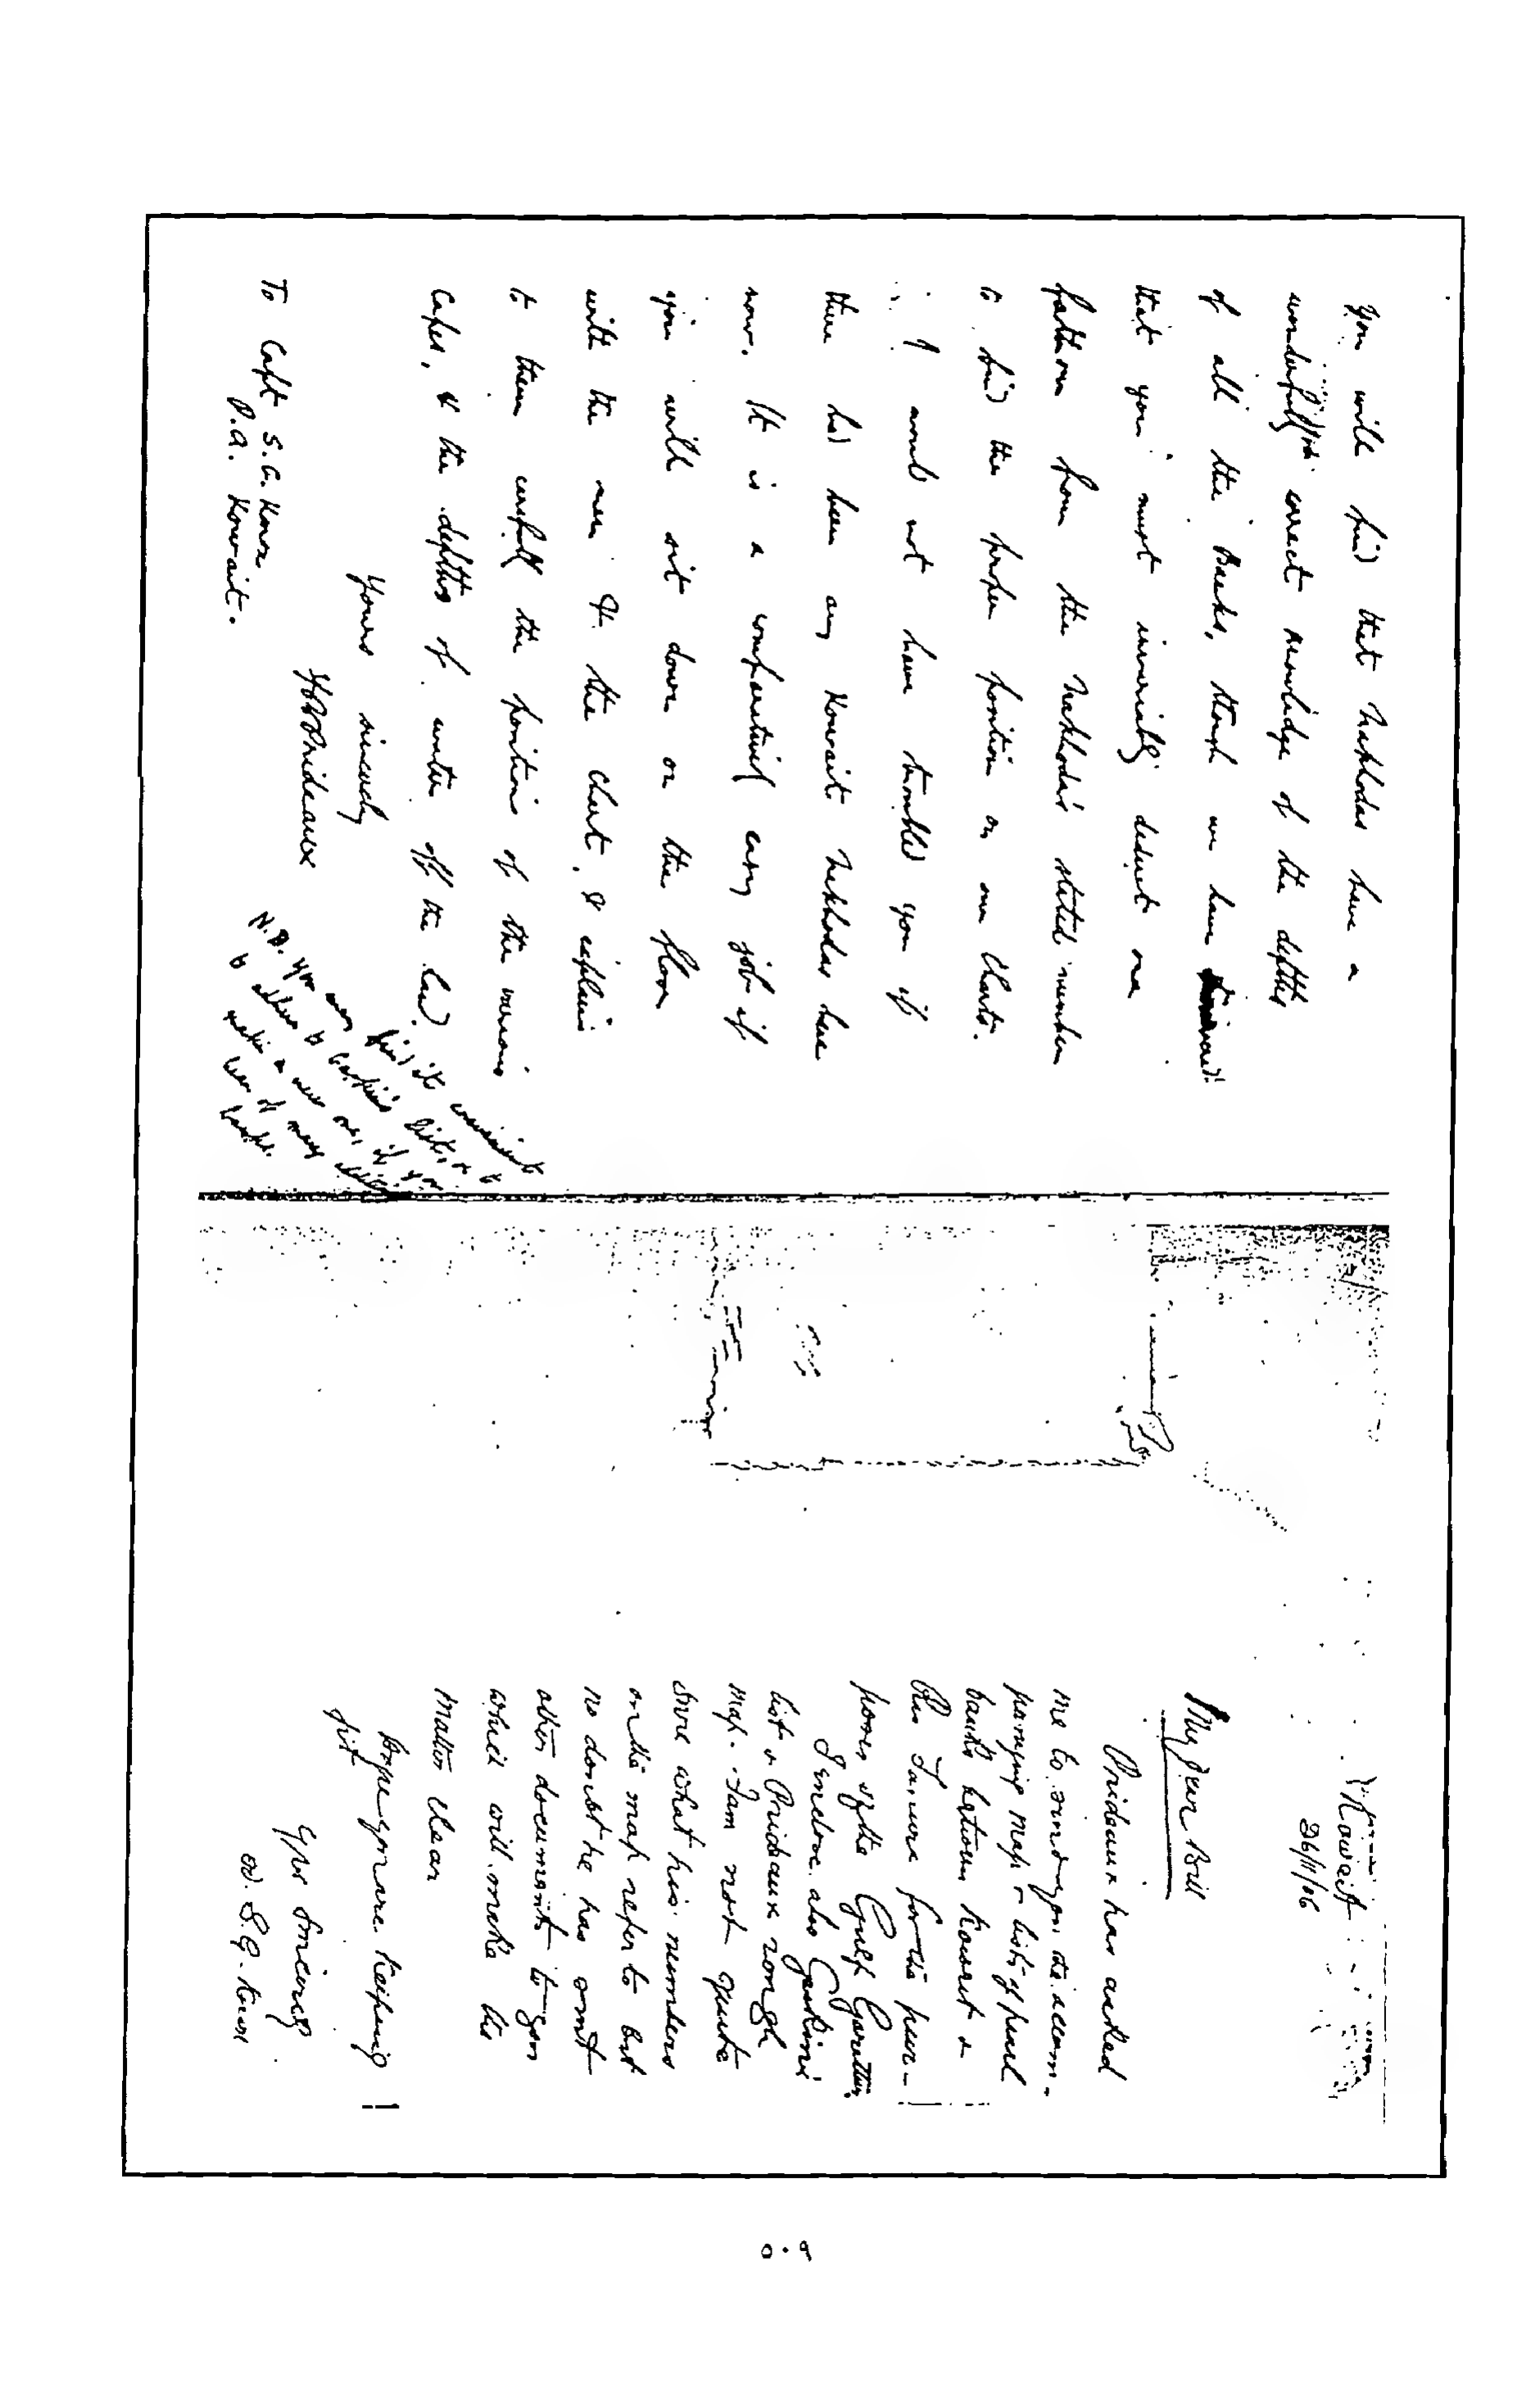 You will find that Nakhodas have a
wonderfully correct knowledge of the depths
of all the Banks, though we have
that you must invariably deduct one
fathom from the Nakhoda's stated number
to find the proper position on our Charts.
I would not have troubled you if
there had been any Kowait Nakhodas here
now. It is a comparatively easy job if
you will sit down on the floor
with the men & the chart, & explain
to them carefully the position of the various
Capes, & the depths of water off the land.
Yours sincerely
Prideaux
To Capt S.G. Knox
P.A. Kowait.
N.B. You may find it convenient
to to Gaskin's list, or to
make a new one, if you
have
Kowait
26/11/06
My dear Bill
Prideaux has asked
me to send you the accom-
panying map & lists of pearl
banks between Kowait &
Ras Tanura for the pur-
poses of the Gulf Gazetteer.
I enclose also Gaskin's
list & Prideaux rough
map. I am not quite
sure what his numbers
on the map refer to but
no doubt he has sent
other documents to you
which will make the
matter clear
Hope you are keeping
fit
Yrs sincerely
sd. S.G. Knox
٥٠٩